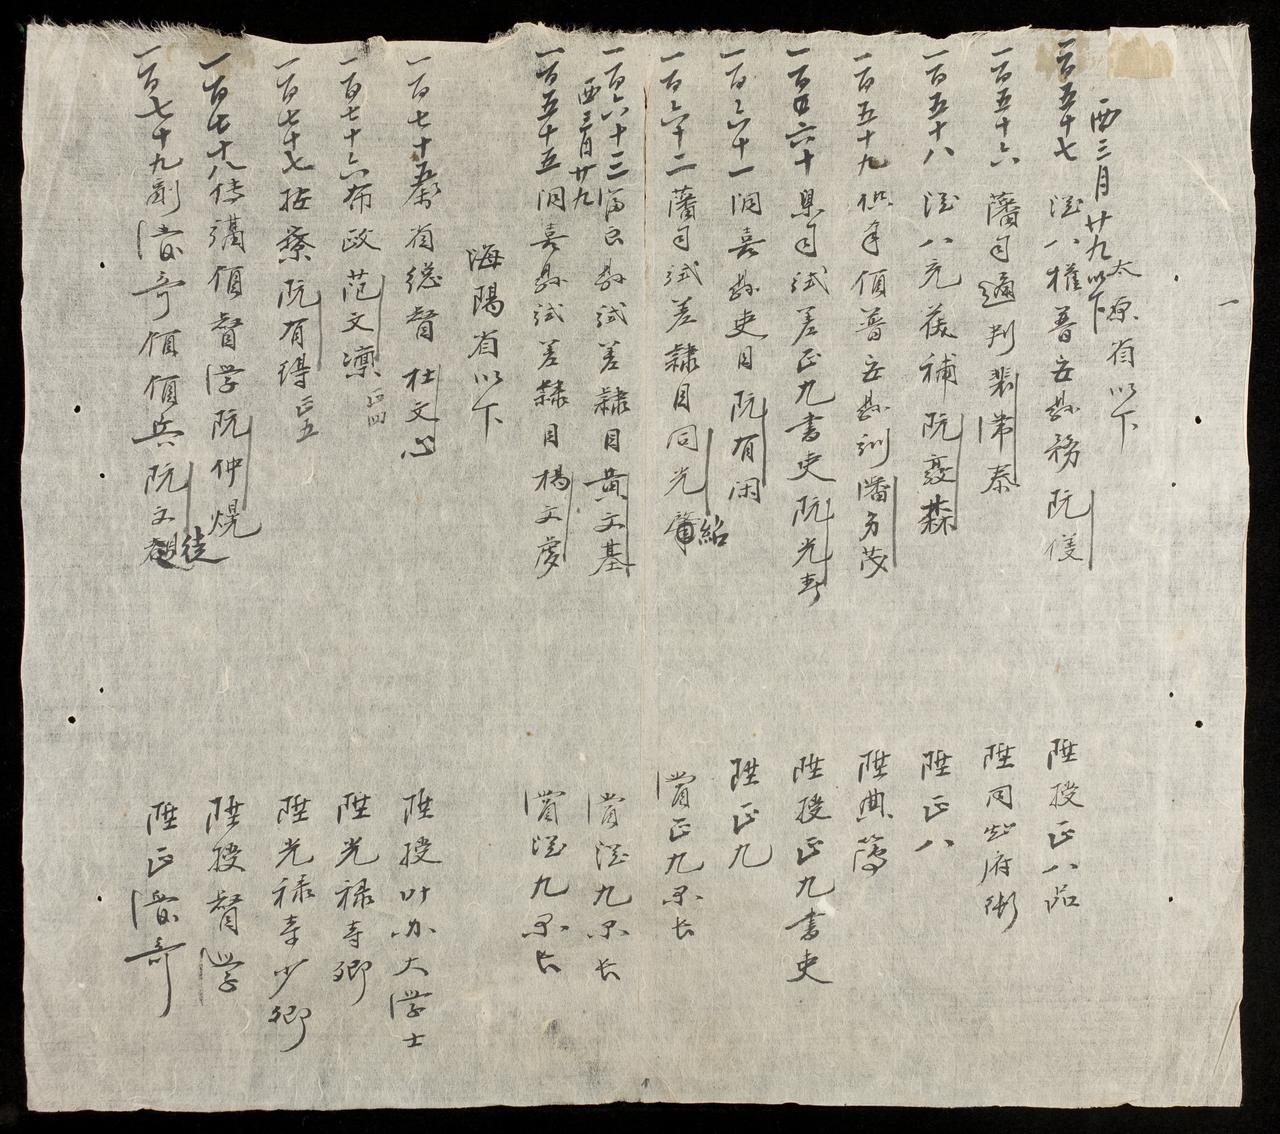 太原省以下
西三月廿九以下
一百五十七 從八權普安縣務阮僾 陞授正八品
一百五十六 藩司通判裴常泰 陞同知府銜
一百五十八 從八充茯補阮 森 陞正八
一百五十九 供事領普安縣訓潘方茂 陞典簿
一百六十 臬司試差正九書吏阮光 陞授正九書吏
一百六十一 洞喜縣吏目阮有闲 陞正九
一百六十二 藩司試差隸目同光紹 賞正九隊长
一百六十三 富良縣試差隸目黄文基 賞從九隊长
西三月廿九
一百五十五 洞喜縣試差隸目楊文 賞從九隊长
海陽省以下
一百七十五 署省總督杜文心 陞授叶办大學士
一百七十六 布政范文 正四 陞光禄寺卿
一百七十七 按察阮有得 正五 陞光禄寺少卿
一百七十八 侍講領督學阮仲熀 陞授督學
一百七十九 副衛奇領領兵阮文 陞正衛奇
一